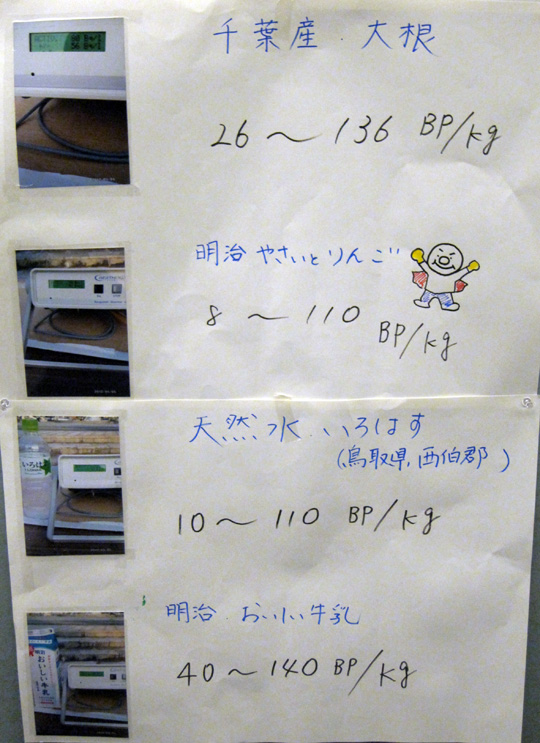 千葉産 大根
26～136 BP/kg
明治 やさいとりんご
8～110 BP/kg
天然水 いろはす
(鳥取県,西伯郡)
10～110 BP/kg
明治 おいしい牛乳
40～140 BP/kg
いろは
明治
おいしい牛乳